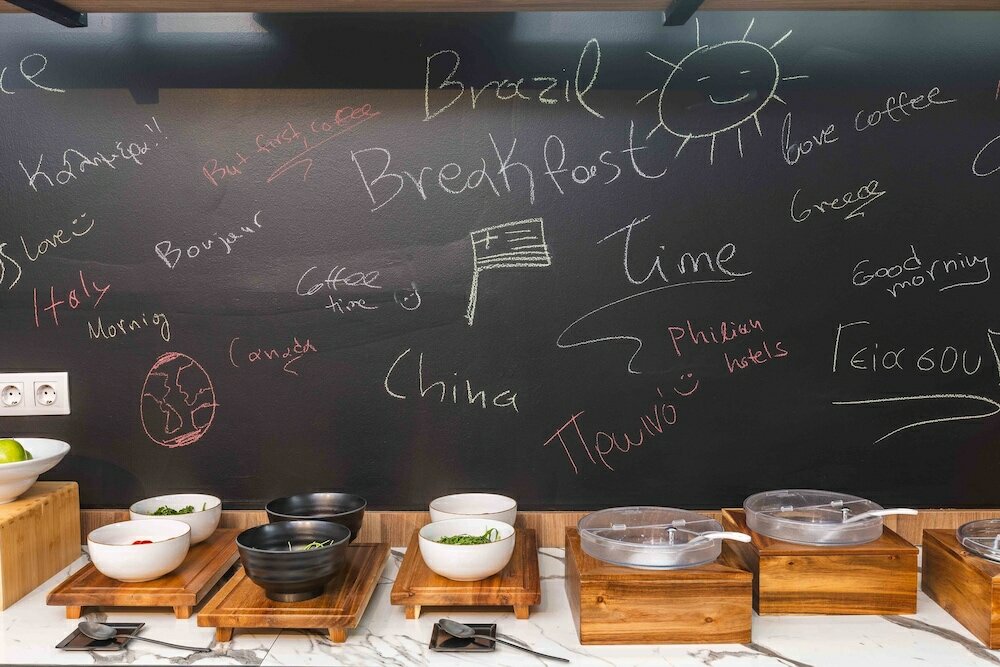 Brazil
Breakfast
Time
love coffee
Greece
Good
morning
Γεια σου
Philian
hotels
Πρωινό
China
Coffee
time
But first, coffee
Καλημέρα!!
Boujour
love
Italy
Morning
Canada